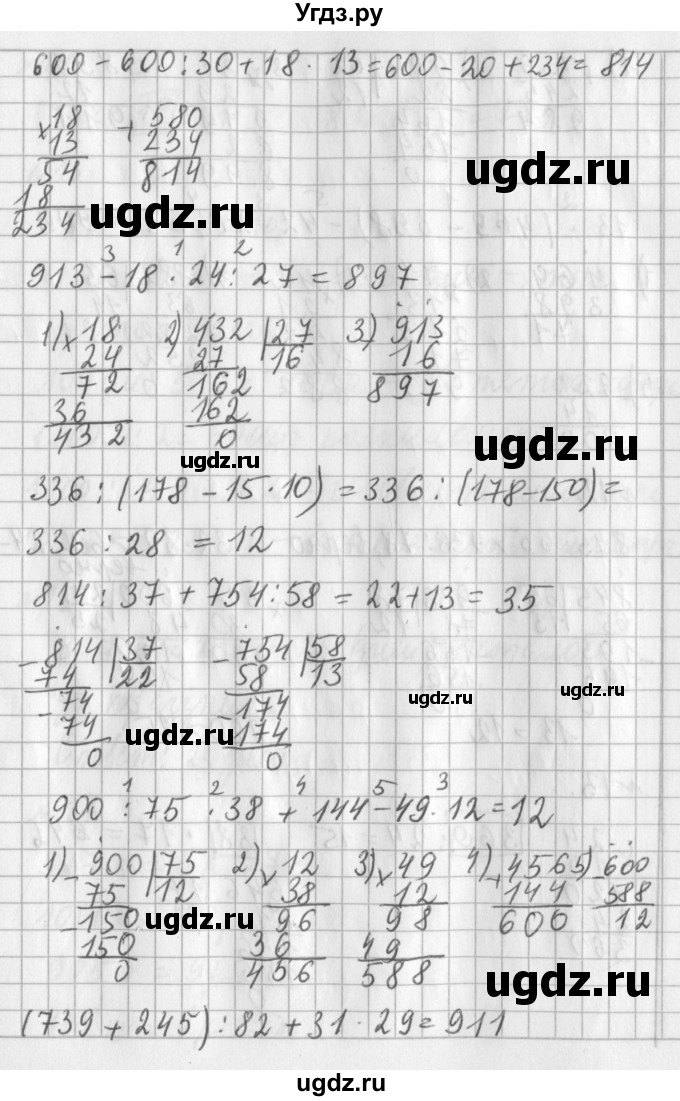 Угдз.ру
600 - 600 : 30 + 18 · 13 = 600 - 20 + 234 = 814
× 18 + 580
13 234
54 814
18
234
ugdz.ru
ugdz.ru
3 1 2
913 - 18 · 24 : 27 = 897
1) × 18 2) 432 | 27 3) 913
24 27 16 16
72 162 897
36 162
432 0
ugdz.ru
ugdz.ru
336 : (178 - 15 · 10) = 336 : (178 - 150) =
336 : 28 = 12
814 : 37 + 754 : 58 = 22 + 13 = 35
- 814 | 37 - 754 | 58
74 22 58 13
- 74 - 174
74 174
0 0
ugdz.ru
ugdz.ru
ugdz.ru
1 2 4 5 3
900 : 75 · 38 + 144 - 49 · 12 = 12
1) - 900 | 75 2) × 12 3) × 49 4) + 456 5) - 600
75 12 38 12 144 588
- 150 96 98 600 12
150 36 49
0 456 588
ugdz.ru
ugdz.ru
(739 + 245) : 82 + 31 · 29 = 911
ugdz.ru